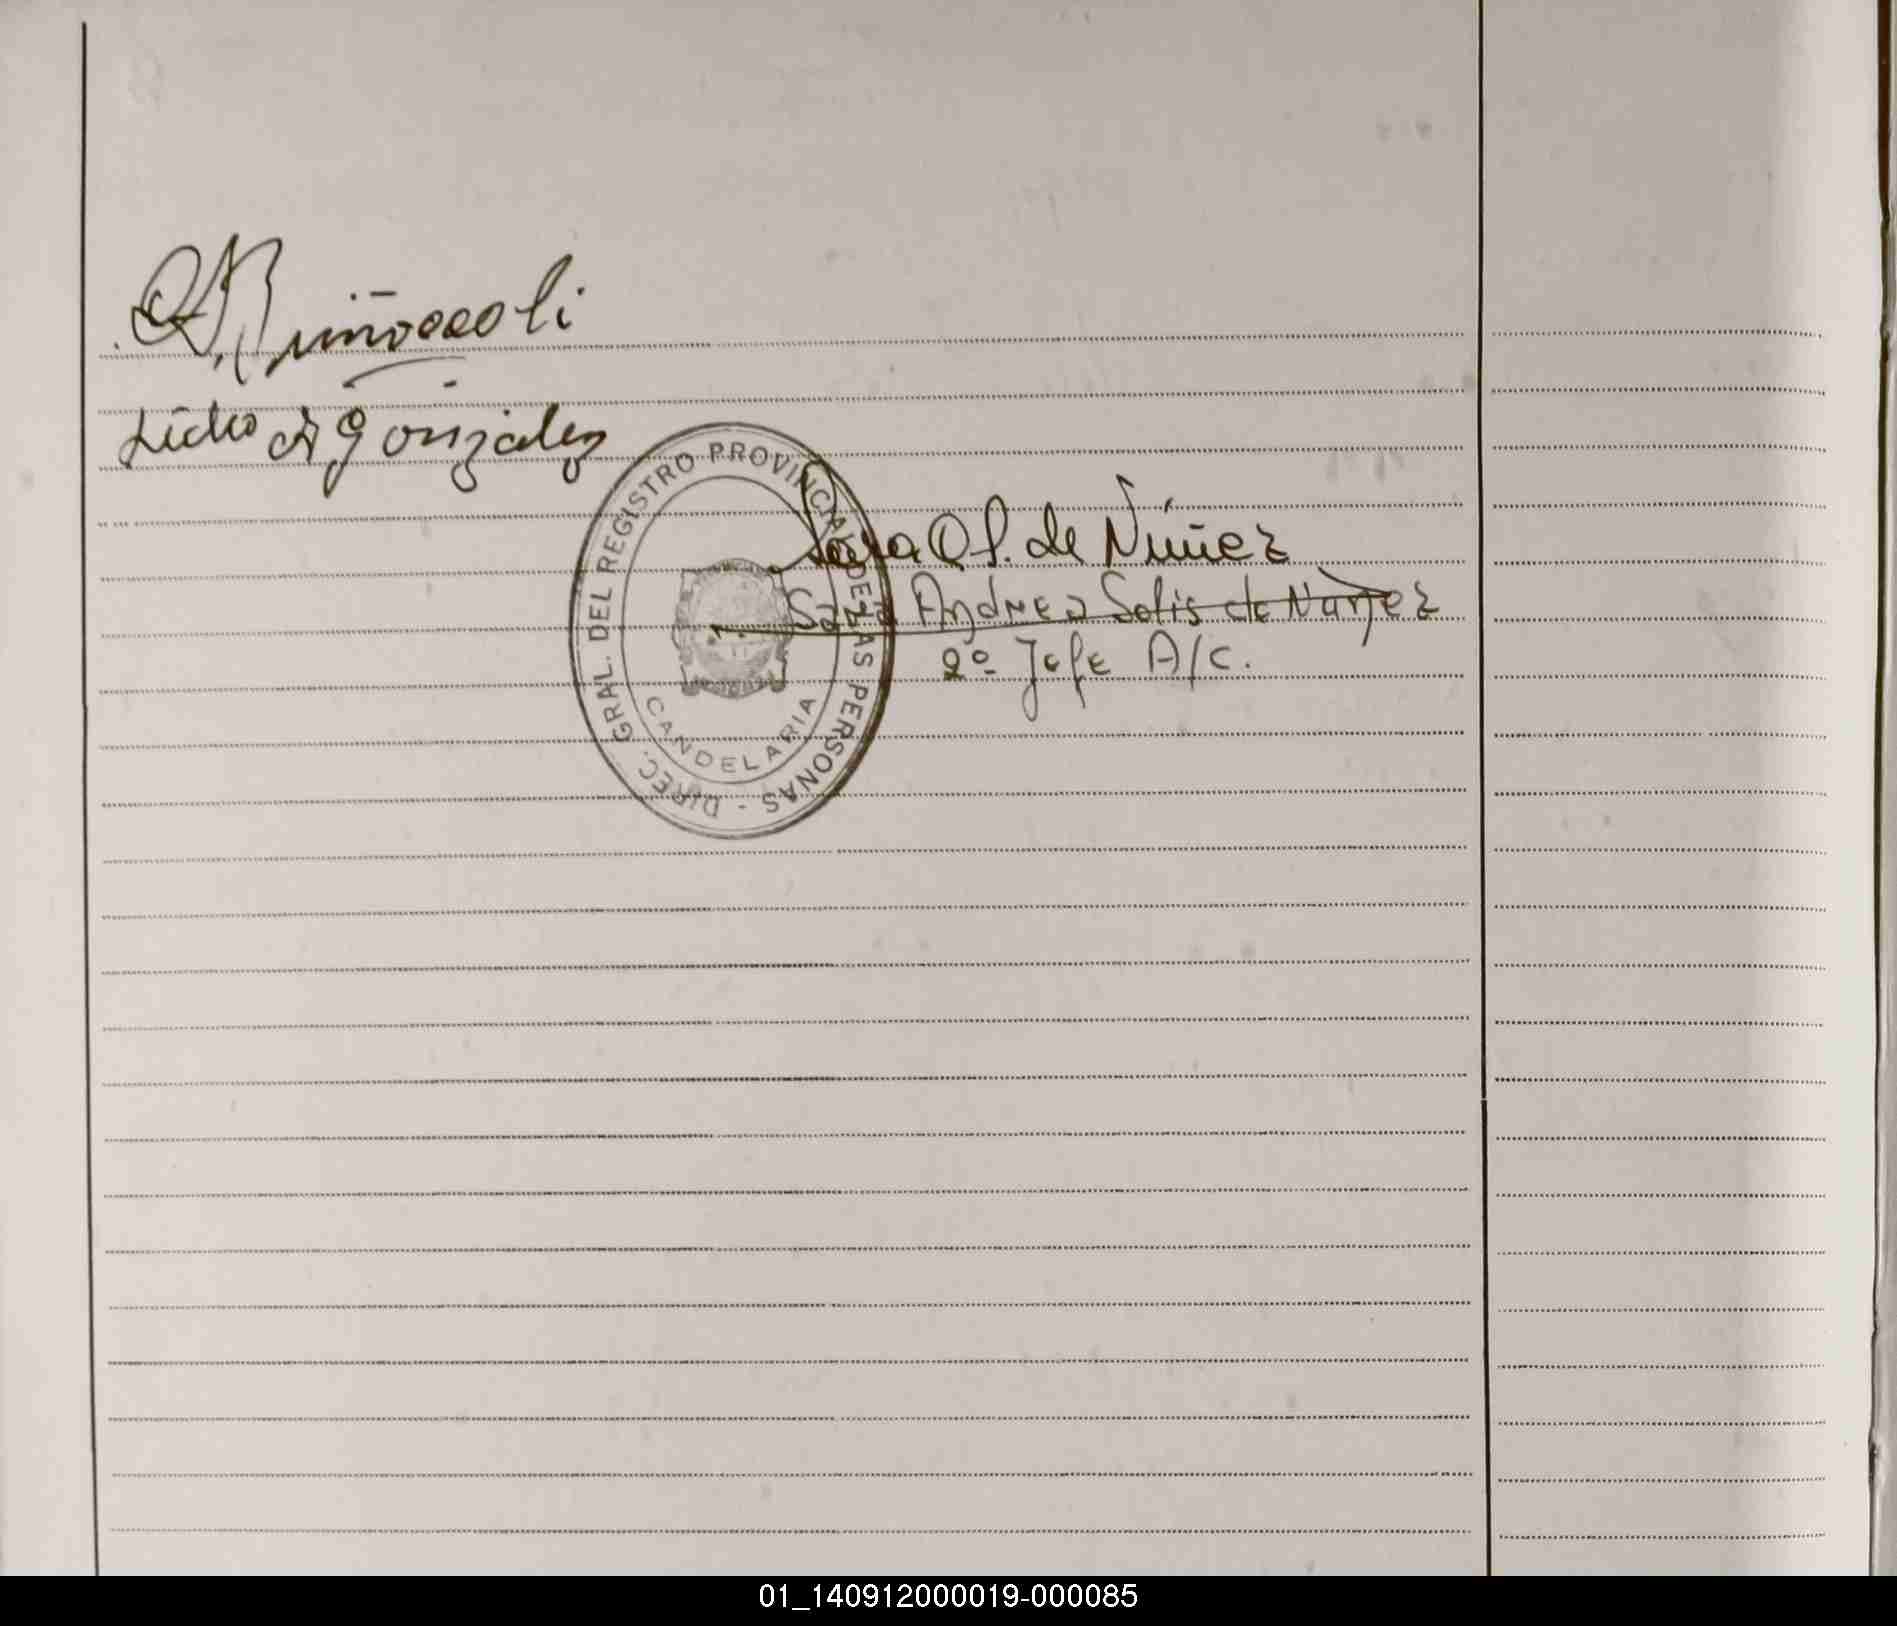 Lidio A Gonzalez
DIREC. GRAL. DEL REGISTRO PROVINCIAL DE LAS PERSONAS -
CANDELARIA
Sara A S. de Núñez
Sara Andrea Solis de Nuñez
2º Jefe A/C.
01_140912000019-000085